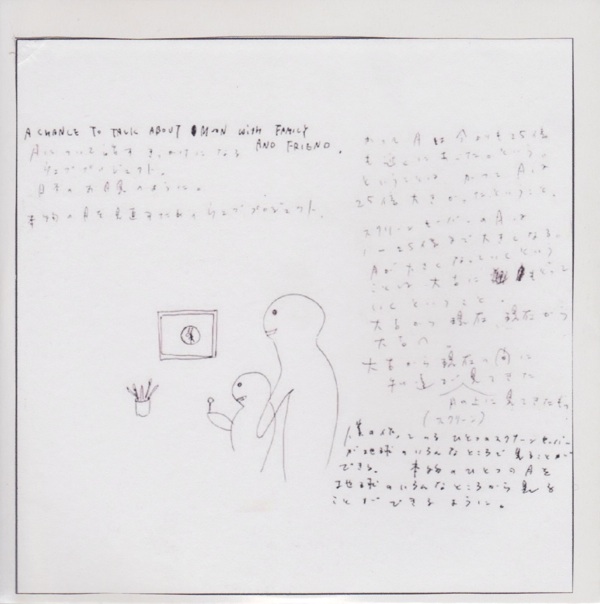 A CHANCE TO TALK ABOUT MOON WITH FAMILY
AND FRIEND.
月について話すきっかけになる
ウェブプロジェクト。
日本のお月見のように。
本物の月を見直すためのウェブプロジェクト。
かつて月は今よりも25倍
も近にあったという。
ということは かつて月は
25倍大きかったということ。
スクリーンセーバーの月は
1〜25倍まで大きくなる。
月が大きくなっていくという
ことは 太古に もどって
いくということ。
太古から現在、現在から
太古へ
太古から現在の間に
私達が見てきた
月の上に見てきたもの
(スクリーン)
僕の作っている ひとつのスクリーンセーバー
が地球のいろんなところで見ることが
できる。 本物のひとつの月を
地球のいろんなところから見る
ことができるように。